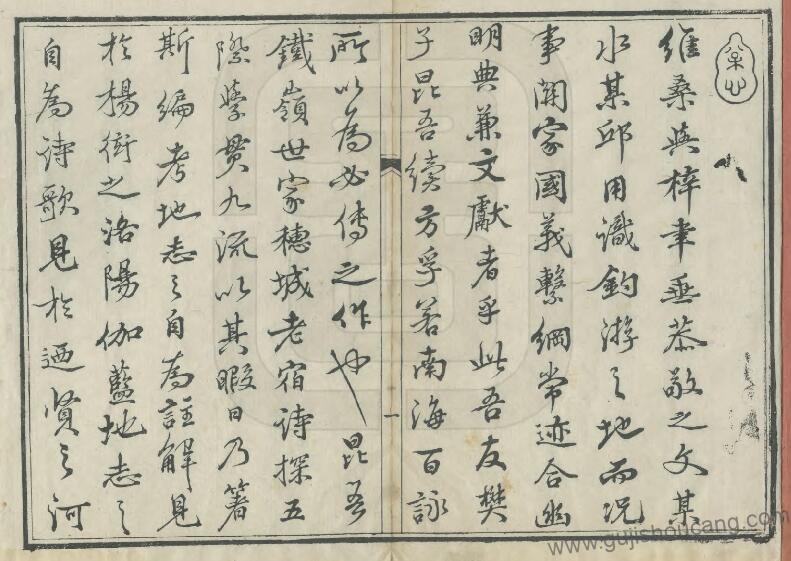 維桑與梓聿垂恭敬之文某
水某邱用識釣游之地而況
事關家國義繫綱常迹合幽
明典兼文獻者乎此吾友樊
子昆吾續方孚若南海百詠
所以為必傳之作也昆吾
鐵嶺世家穗城老宿詩探五
際學貫九流以其暇日乃著
斯編考地志之自為註解見
於楊衒之洛陽伽藍地志之
自為詩歌見於迺賢之河
一
www.gujishoucang.com